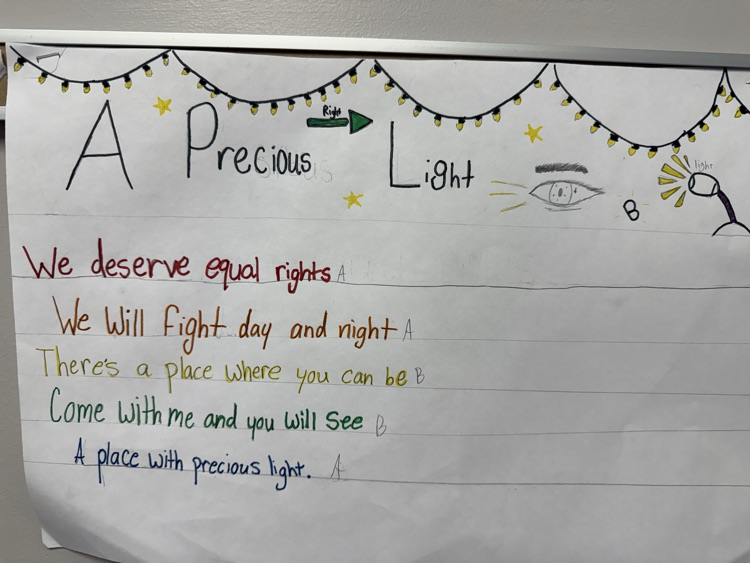 Right
A Precious Light
light
B
We deserve equal rights A
We Will fight day and night A
There's a place where you can be B
Come with me and you will see B
A place with precious light. A